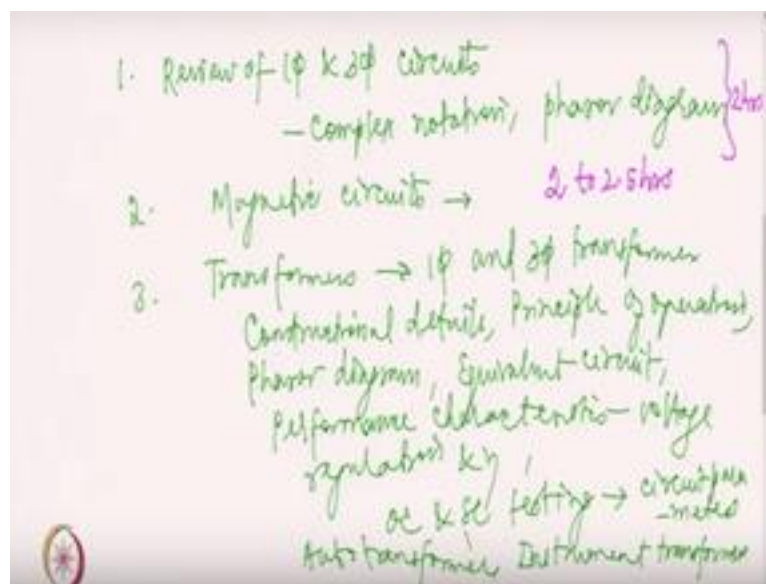 1. Review of 1φ & 3φ circuits
- Complex notation, phasor diagram } 2 hrs
2. Magnetic circuits → 2 to 2.5 hrs
3. Transformers → 1φ and 3φ transformer
Constructional details, Principle of operation,
Phasor diagram, Equivalent circuit,
Performance characteristic - voltage
regulation & η,
OC & SC testing → circuit para
-meters
Autotransformer, Instrument transformer